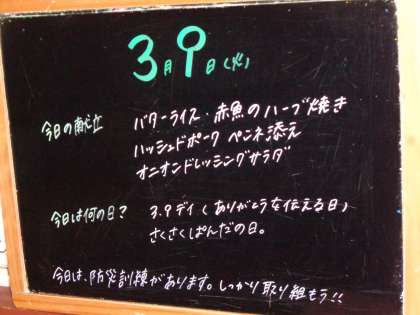 3月9日(火)
今日の献立 バターライス・赤魚のハーブ焼き
ハッシュドポーク ペンネ添え
オニオンドレッシングサラダ
今日は何の日? 3.9デイ(ありがとうを伝える日)
さくさくぱんだの日。
今日は、防災訓練があります。しっかり取り組もう!!